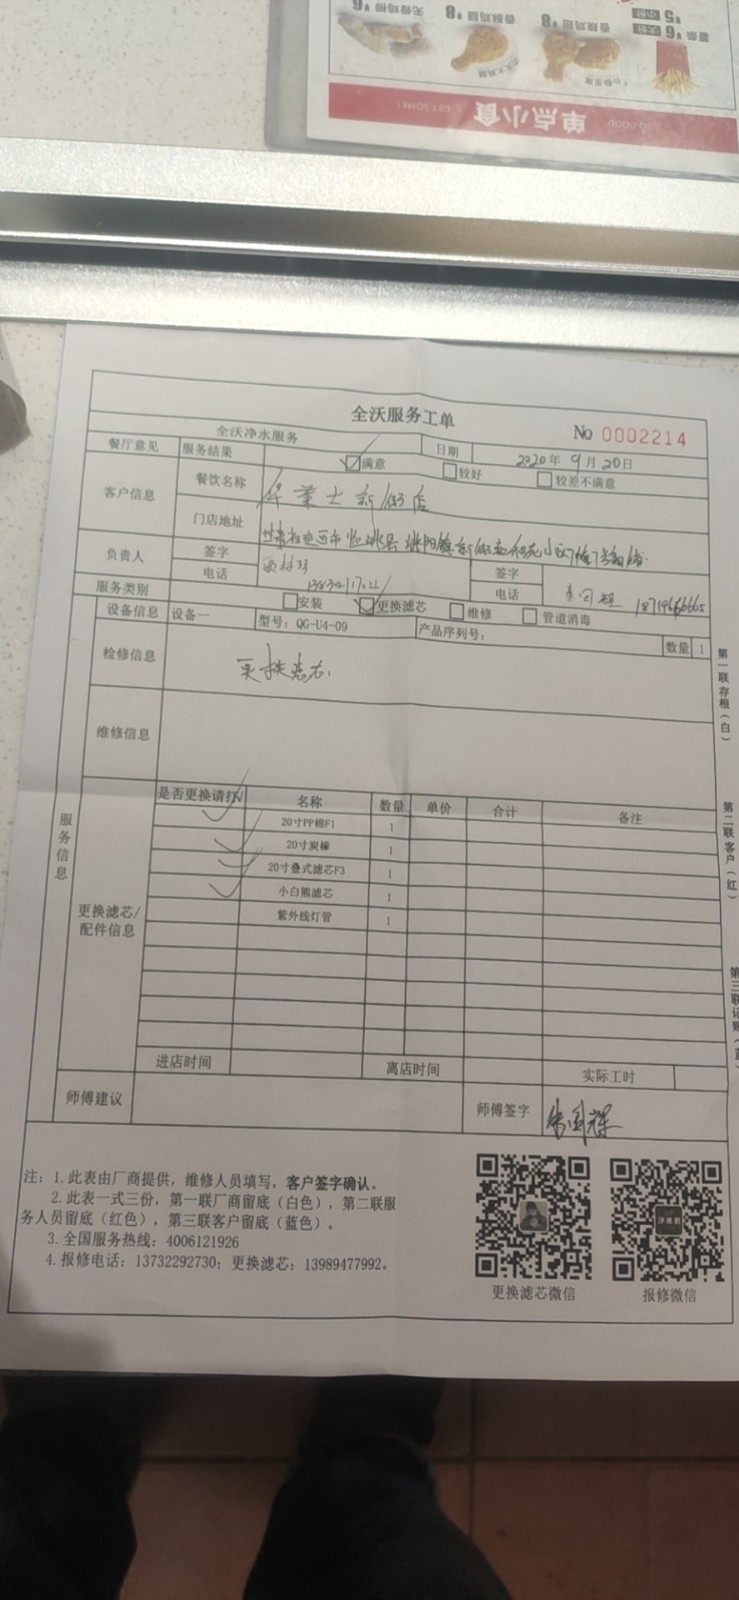 无骨鸡柳 ¥6
香酥鸡腿 ¥8
香辣鸡翅 ¥8
薯条 大份 ¥6
小份 ¥5
单点小食
GET SOME!
SO GOOD
全沃服务工单
No 0002214
全沃净水服务
日期 2020年9月20日
餐厅意见 服务结果 满意 较好 较差不满意
客户信息 餐饮名称 华莱士新街店
门店地址
负责人 签字 签字
电话 电话
服务类别 安装 更换滤芯 维修 管道消毒
设备信息 设备一 型号：QG-U4-09 产品序列号： 数量 1
检修信息
维修信息
服务信息
更换滤芯/配件信息
是否更换请打√ 名称 数量 单价 合计 备注
20寸PP棉F1 1
20寸炭棒 1
20寸叠式滤芯F3 1
小白熊滤芯 1
紫外线灯管 1
进店时间 离店时间 实际工时
师傅建议 师傅签字
第一联存根（白）
第二联客户（红）
第三联记账（蓝）
注：1.此表由厂商提供，维修人员填写，客户签字确认。
2.此表一式三份，第一联厂商留底（白色），第二联服
务人员留底（红色），第三联客户留底（蓝色）。
3.全国服务热线：4006121926
4.报修电话：13732292730；更换滤芯：13989477992。
更换滤芯微信 报修微信